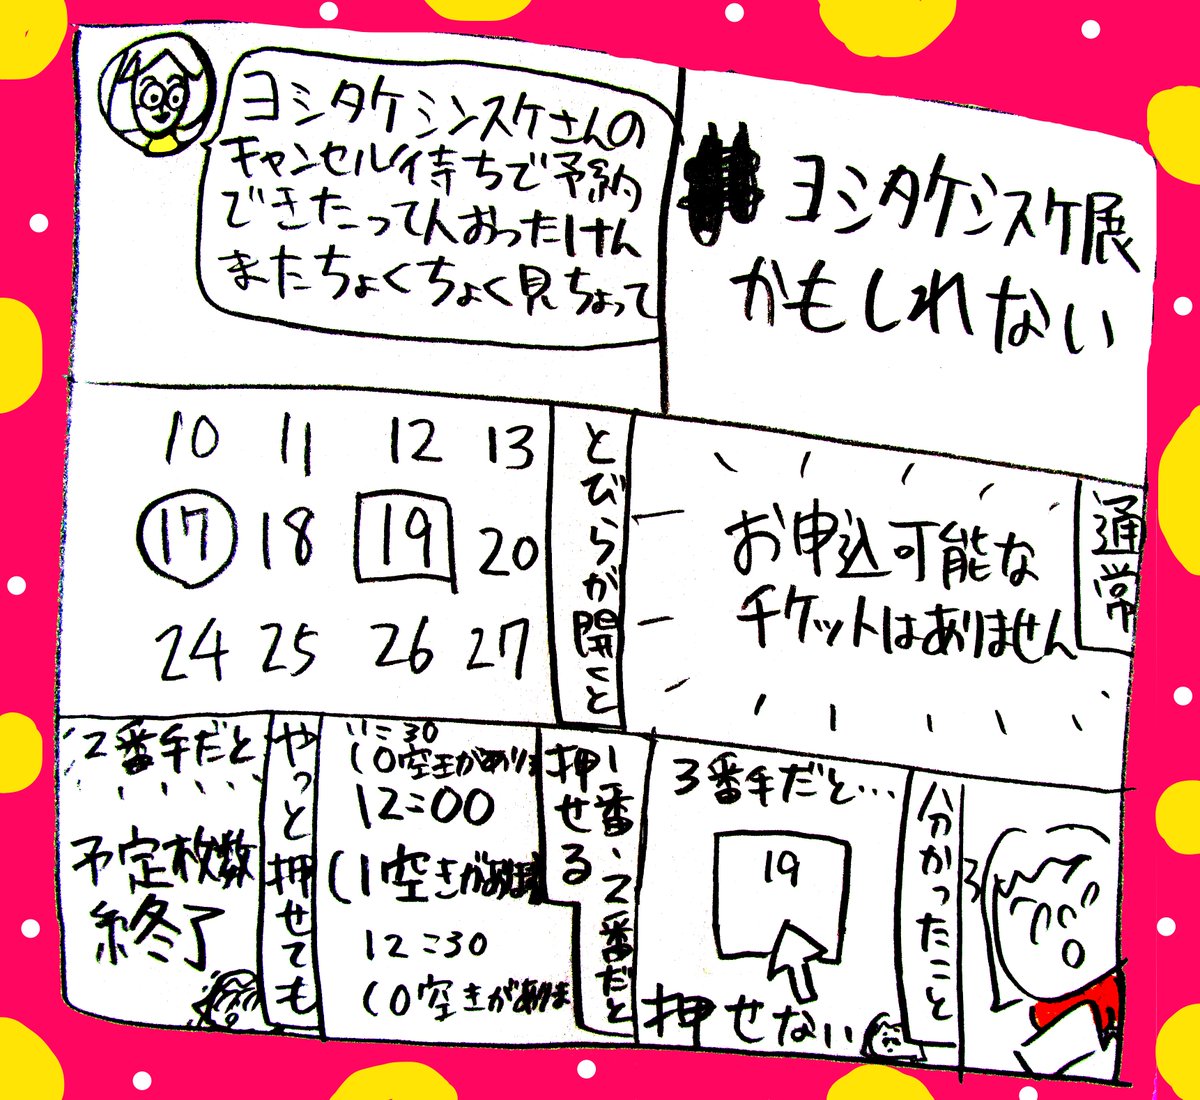 ヨシタケシンスケ展
かもしれない
ヨシタケシンスケさんの
キャンセル待ちで予約
できたって人おったけん
またちょくちょく見ちょって
通常
お申込可能な
チケットはありません
とびらが開くと
10 11 12 13
17 18 19 20
24 25 26 27
分かったこと
3番手だと…
19
押せない
1番、2番だと
押せる
11:30
(0空きがありま
12:00
(1空きがあります
12:30
(0空きがありま
やっと押せても
2番手だと
予定枚数
終了